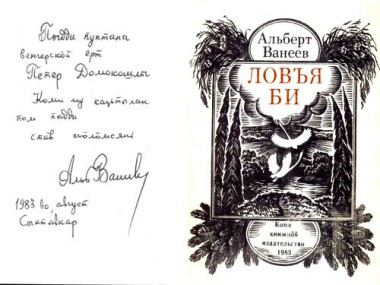 Пыдди пуктана
венгерской ёрт
Петер Домокошлы
Коми му
пыдди
став сьӧлӧмсянь
Альб Ванеев
1983 во, август
Сыктывкар
Альберт
Ванеев
ЛОВЪЯ
БИ
Коми
книжнӧй
издательство
1983